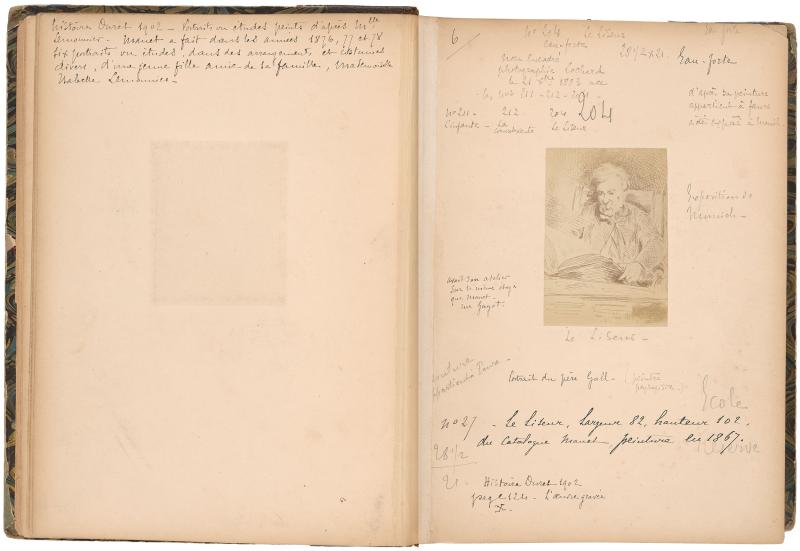 Histoire Duret 1902 - Portraits ou études peints d'après Mlle
Lemonnier - Manet a fait dans les années 1876, 77 et 78
six portraits ou études, dans des arrangements et costumes
divers, d'une jeune fille amie de sa famille, Mademoiselle
Isabelle Lemonnier -
6
N° 204 Le Liseur
eau forte
28 1/2 x 21.
Eau-forte
non encadré
photographie Lochard
le 21 Xbre 1883 avec
les nos 211 - 212 - 204
204
N° 211 - 212 204
L'infante - La Le Liseur
d'après sa peinture
appartient à Faure
a été exposé à Munich.
Exposition de
Munich -
avait son atelier
sur le même étage
que Manet -
rue Guyot
Le Liseur -
peinture
appartient à Faure -
Portrait du père Gall - (peintre
paysagiste -)
École
n° 27 - Le Liseur, Largeur 82, hauteur 102,
du catalogue Manet, peinture en 1867.
28 1/2
21 -
Histoire Duret 1902
page 124 - L'œuvre gravée